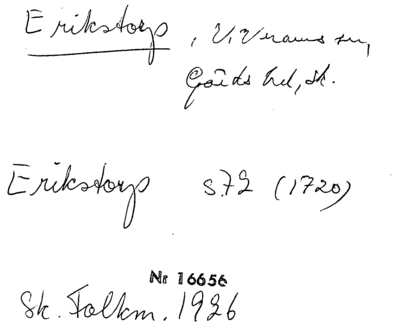 Erikstorp, V. Vrams sn,
Gärds hd, sk.
Erikstorp s. 72 (1720)
Nr 16656
Sk. Folkm. 1926